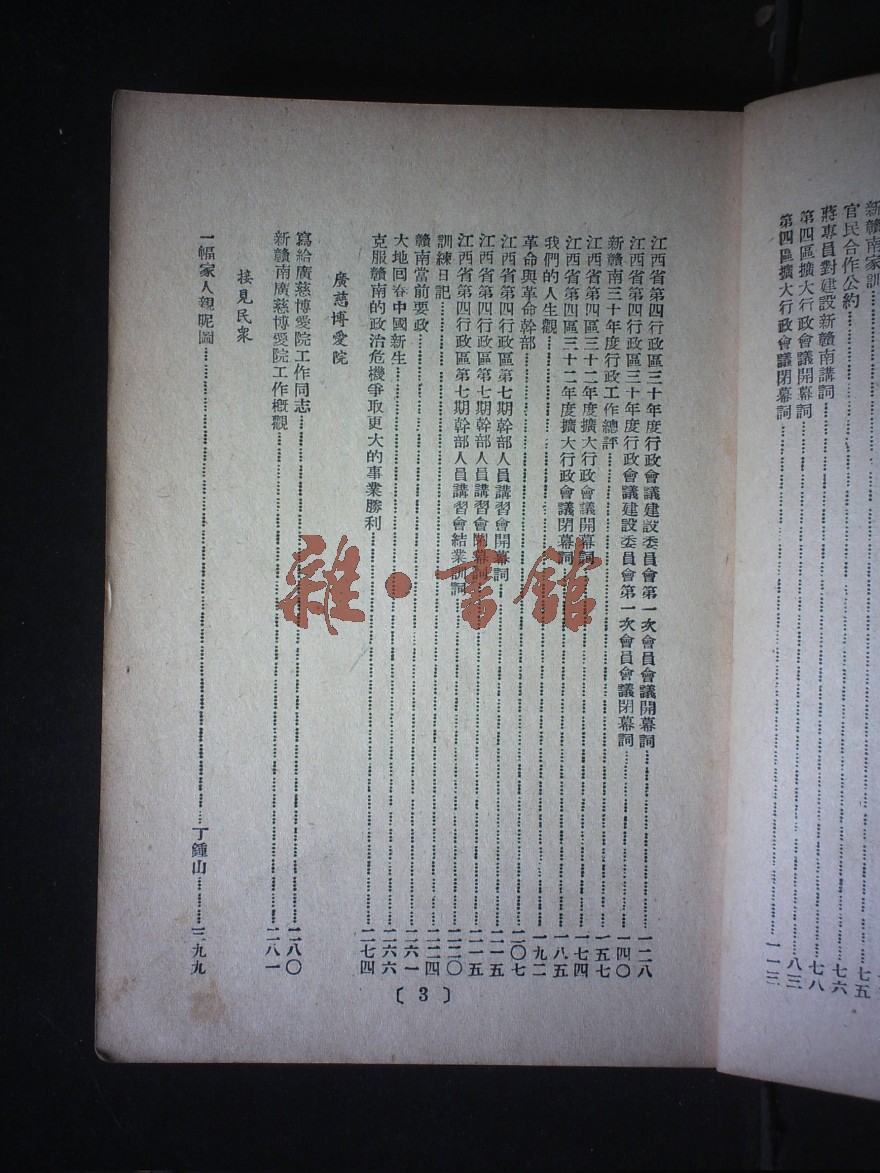 新贛南家訓
官民合作公約……七五
蔣專員對建設新贛南講詞……七六
第四區擴大行政會議開幕詞……七八
第四區擴大行政會議閉幕詞……八三
一一三
江西省第四行政區三十年度行政會議建設委員會第一次會員會議開幕詞……一二八
江西省第四行政區三十年度行政會議建設委員會第一次會員會議閉幕詞……一四〇
新贛南三十年度行政工作總評……一五七
江西省第四區三十二年度擴大行政會議開幕詞……一七四
江西省第四區三十二年度擴大行政會議閉幕詞……一八五
我們的人生觀……一九二
革命與革命幹部……二〇七
江西省第四行政區第七期幹部人員講習會開幕詞……二一五
江西省第四行政區第七期幹部人員講習會閉幕詞……二一五
江西省第四行政區第七期幹部人員講習會結業訓詞……二二〇
訓練日記……二二四
贛南當前要政……二六一
大地回春中國新生……二六六
克服贛南的政治危機爭取更大的事業勝利……二七四
廣慈博愛院
寫給廣慈博愛院工作同志……二八〇
新贛南廣慈博愛院工作概觀……二八一
接見民衆
一幅家人親昵圖……丁鍾山……二九九
〔3〕
雜·書館